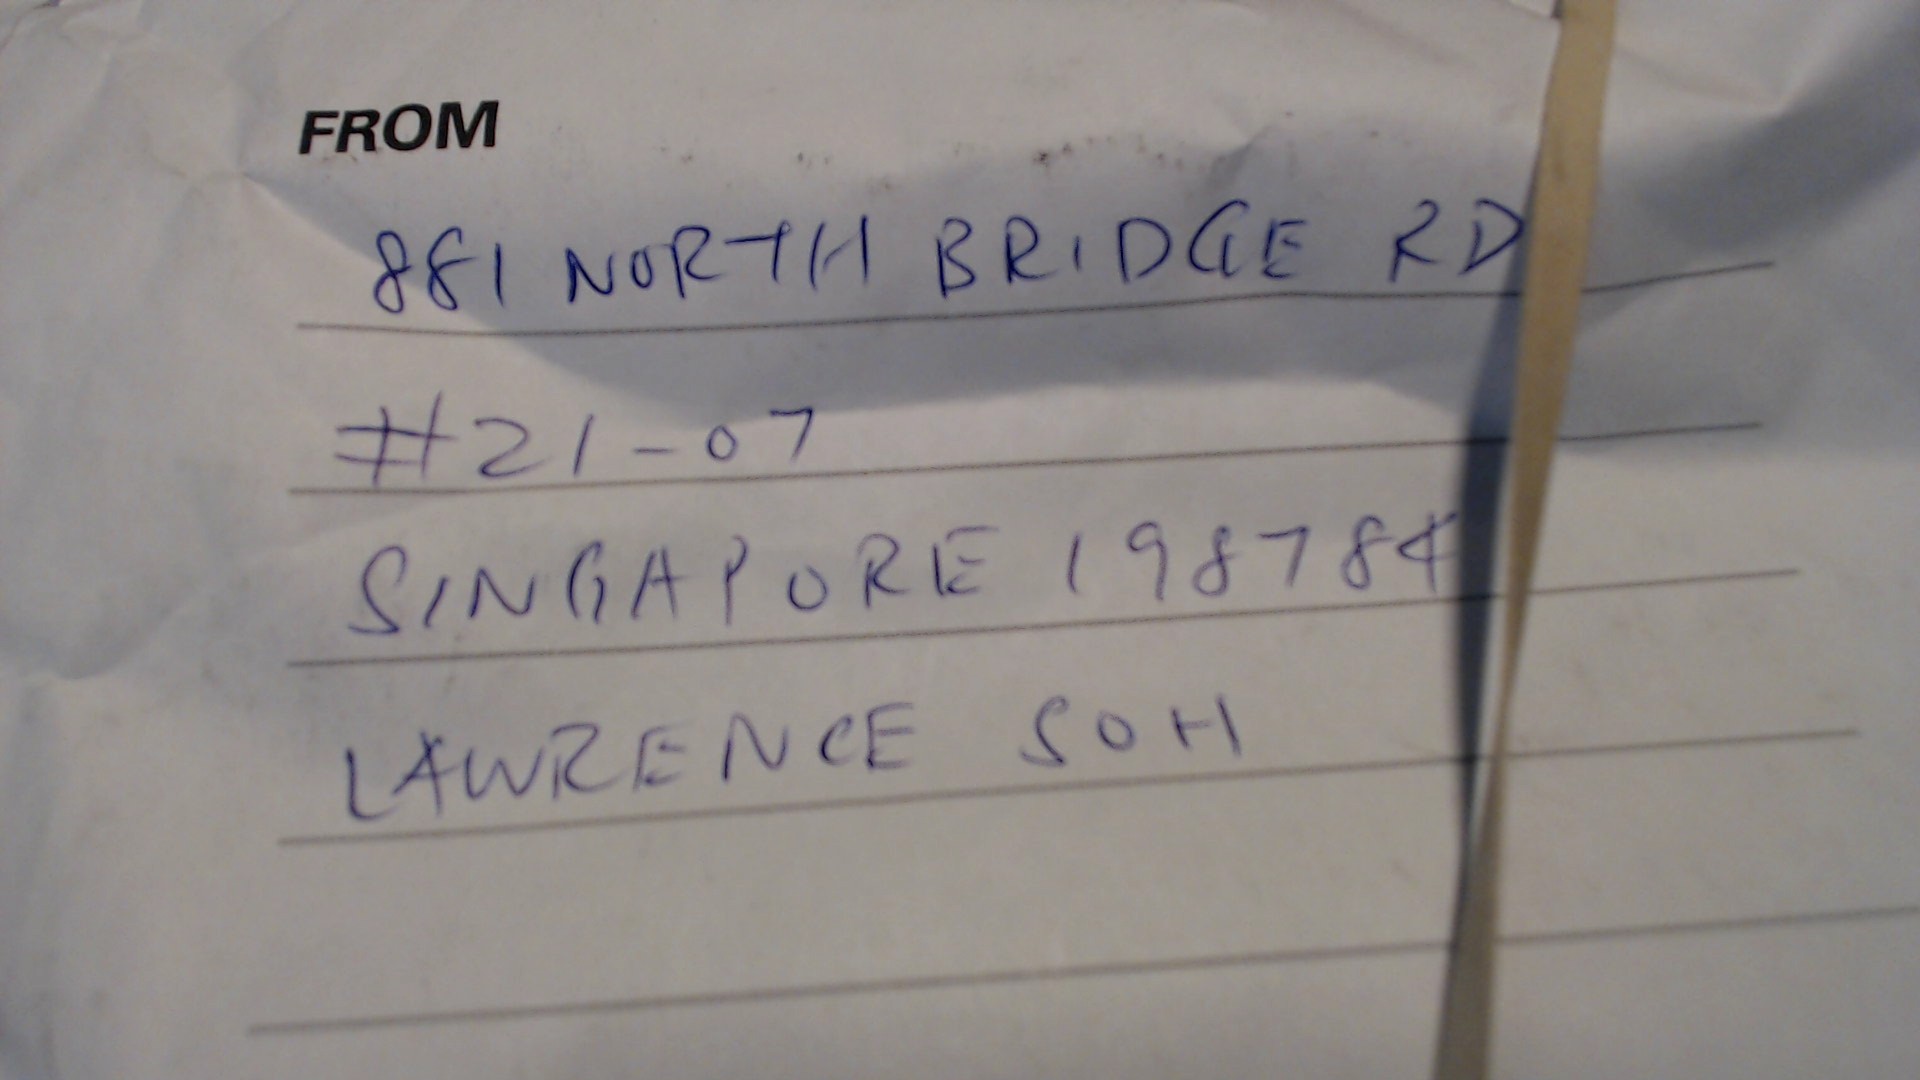 FROM
881 NORTH BRIDGE RD
#21-07
SINGAPORE 198784
LAWRENCE SOH